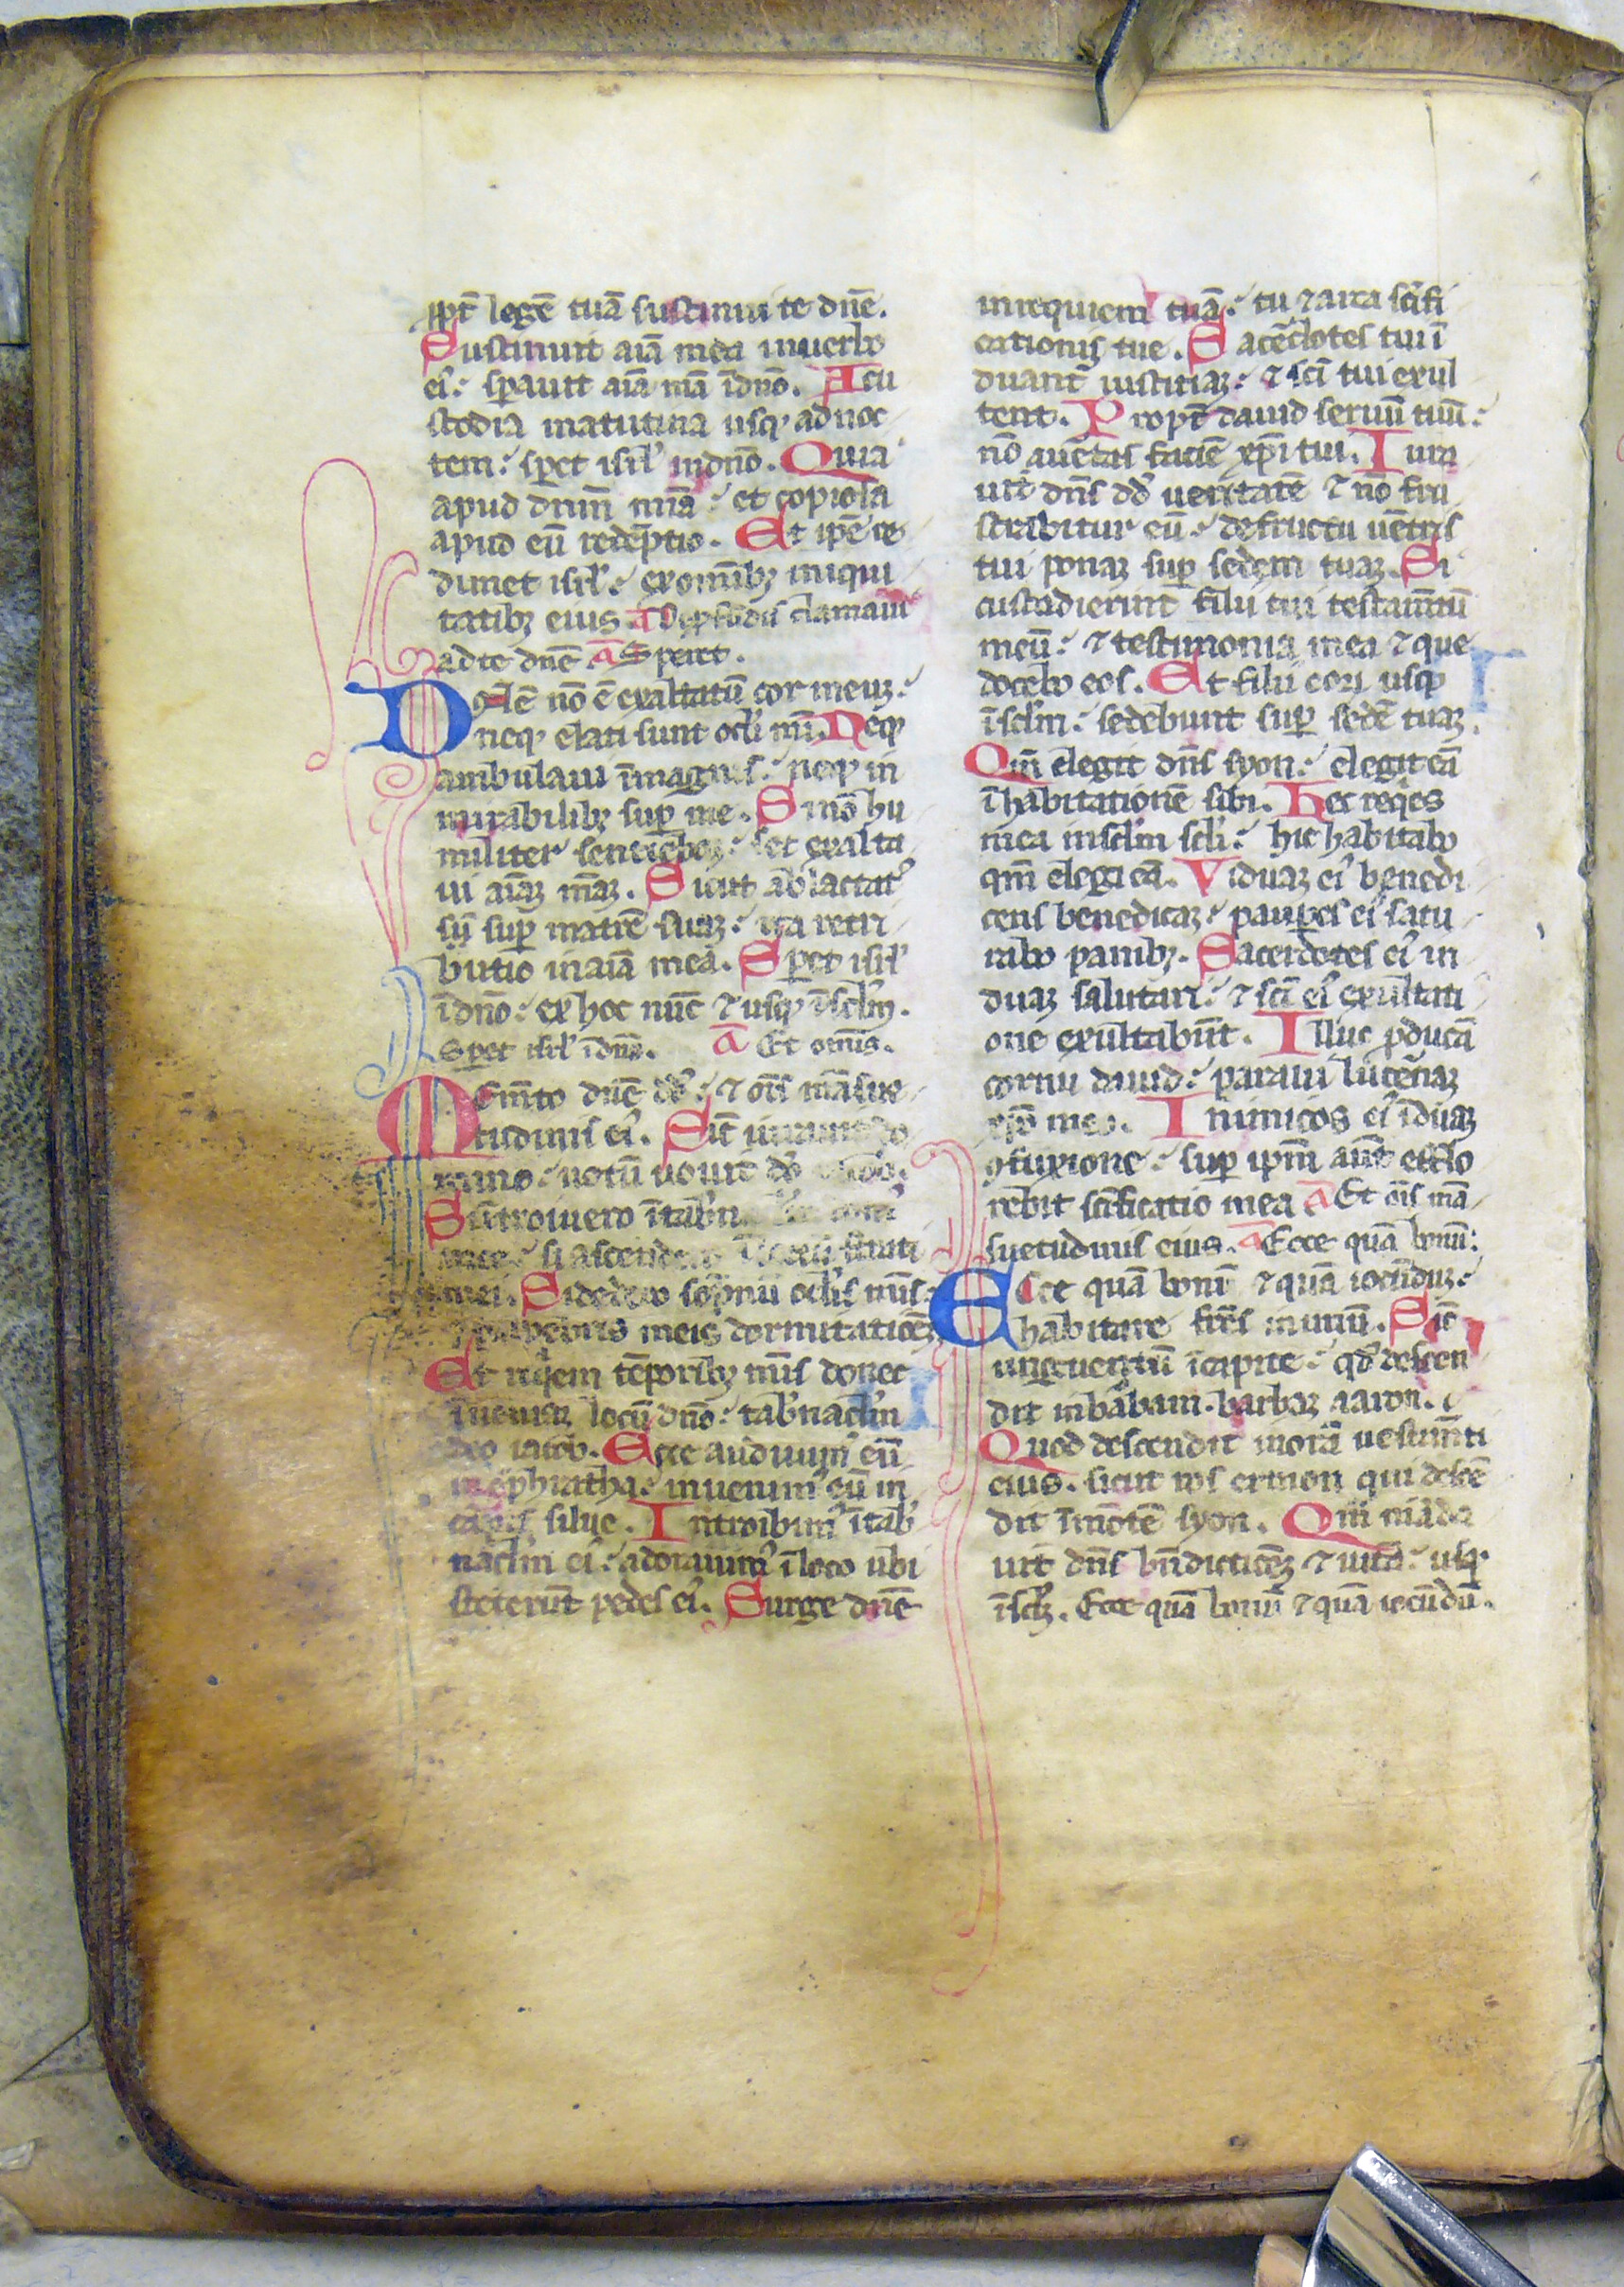 ꝓpt̄ legē tuā sustinui te dn̄e.
Sustinuit aīa mea in uerbo
eiꝰ: sꝑauit aīa mā ī dn̄o. A cu
stodia matutina usqꝫ ad noc
tem: sꝑet isrl̓ in dn̄o. Quia
apud dnm̄ mīa: et copiosa
apud eū redēptio. Et ip̄e re
dimet isrl̓: ex om̄ibꝫ iniqui
tatibꝫ eius. a De ꝓfūdis clamaui
ad te dn̄e ā Speret.
Dn̄e nō ē exaltatū cor meuꝫ:
neqꝫ elati sunt ocl̓i mī. Neqꝫ
ambulaui ī magnis: neqꝫ in
mirabilibꝫ suꝑ me. Si nō hu
militer sentiebaꝫ: set exalta
ui aīaꝫ māꝫ. Sicut ablactatꝰ
sū suꝑ matrē suaꝫ: ita retri
butio in aīa mea. Sꝑet isrl̓
ī dn̄o: ex hoc nūc ⁊ usqꝫ ī sclm̄.
Sꝑet isrl̓ ī dn̄o. ā Et omīs.
Memēto dn̄e dd̓: ⁊ oīs māsue
tudinis eiꝰ. Sic̄ iurauit do
mino: uotū uouit dō
Si ītroiuero ī tab̓n
mee: si ascendero strati
mei. Si dedero sōpnū ocl̓is mīs:
⁊ palpebris meis dormitationē
Et reqiem tēporibꝫ mīs donec
īueniaꝫ locū dn̄o: tab̓naclm̄
deo iacob. Ecce audiuimꝰ eū
in ephratha: inuenimꝰ eū in
cāpis silue. Introibimꝰ ī tab̓
naclm̄ eiꝰ: adorauimꝰ ī loco ubi
steterūt pedes eiꝰ. Surge dn̄e
in requiem tuā: tu ⁊ arca sc̄ifi
cationis tue. Sacēdotes tui ī
duant̄ iusticiaꝫ: ⁊ sc̄i tui exul
tent. Propt̄ dauid seruū tuū:
nō auertas faciē xp̄i tui. Iura
uit dn̄s dd̓ ueritatē ⁊ nō fru
strabitur eū: de fructu uētris
tui ponaꝫ suꝑ sedem tuaꝫ. Si
custodierint filii tui testam̄tū
meū: ⁊ testimonia mea ⁊ que
docebo eos. Et filii eoꝝ usqꝫ
ī sclm̄: sedebunt suꝑ sedē tuaꝫ.
Qm̄ elegit dn̄s syon: elegit eā
ī habitationē sibi. Hec reqies
mea in sclm̄ scl̓i: hic habitabo
qm̄ elegi eā. Viduaꝫ eiꝰ benedi
cens benedicaꝫ: pauꝑes eiꝰ satu
rabo panibꝫ. Sacerdotes eiꝰ in
duaꝫ salutari: ⁊ sc̄i eiꝰ exultati
one exultabūt. Illuc ꝓducā
cornu dauid: paraui lucernaꝫ
xp̄o meo. Inimicos eiꝰ īduaꝫ
ꝯfuxione: suꝑ ip̄m aūt efflo
rebit sc̄ificatio mea ā Et oīs mā
suetudinis eius. ā Ecce quā bonū:
Ecce quā bonū ⁊ quā iocūduꝫ:
habitare frēs in unū. Sic̄
unguentū ī capite: qd̓ descen
dit in barbam. barbaꝫ aaron.
Quod descendit in orā uestim̄ti
eius. sicut ros ermon qui descē
dit ī mōtē syon. Qm̄ māda
uit dn̄s bn̄dictionēꝫ ⁊ uitā: usqꝫ
ī sclꝫ. Ecce quā bonū ⁊ quā iocūdū.